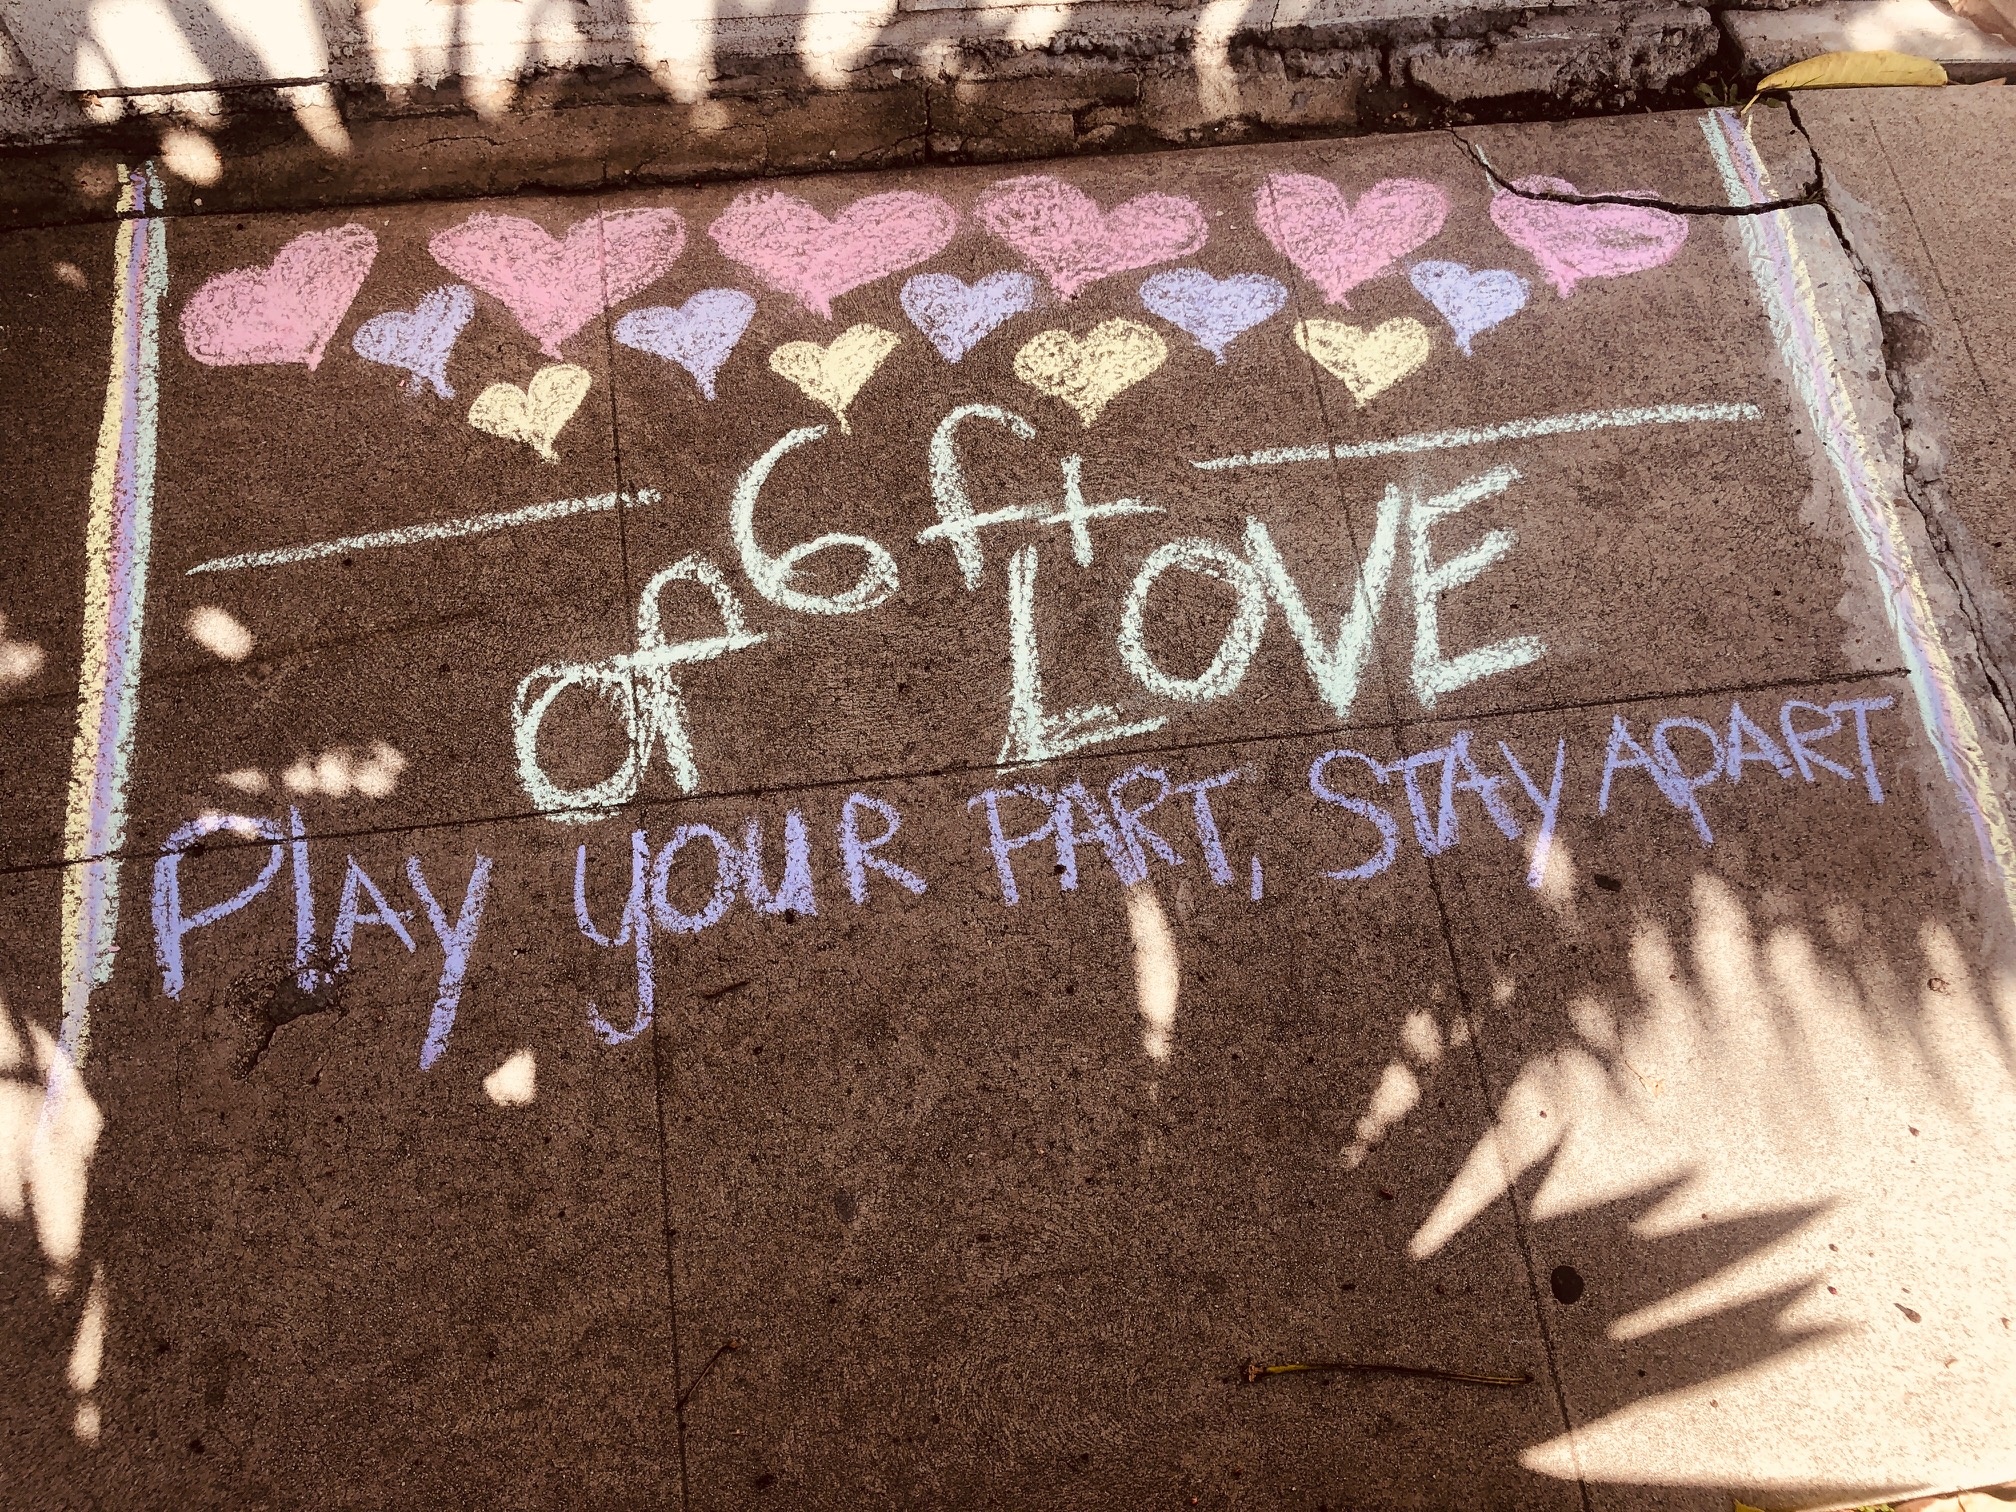 6ft
of LOVE
Play your PART, STAY APART